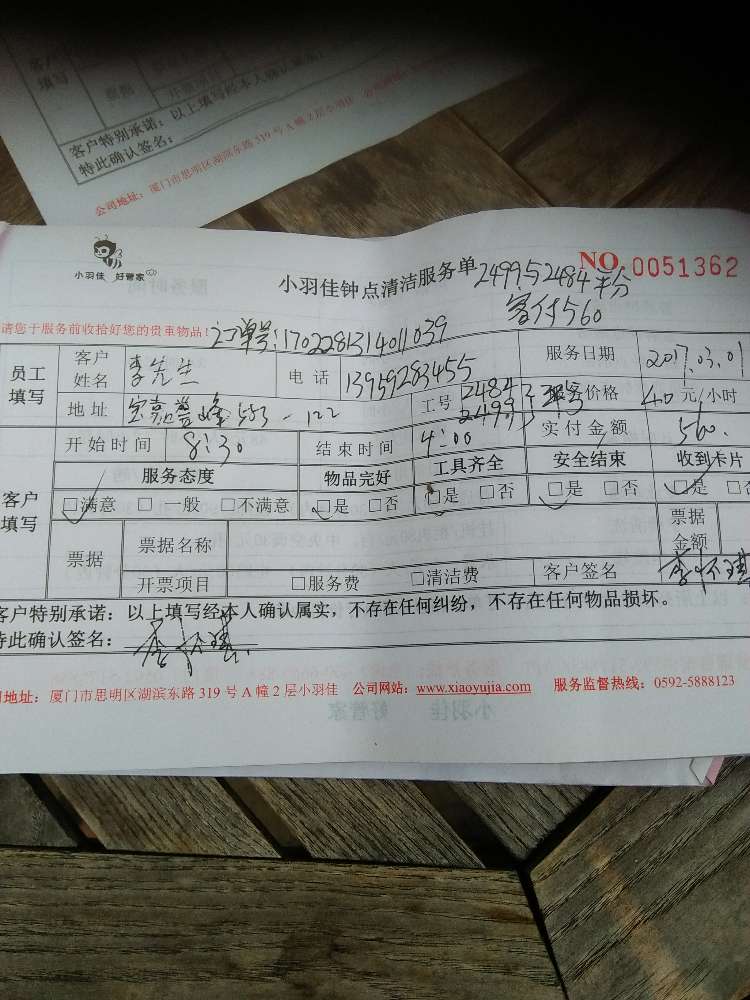 客户
填写
票据
开票项目
客户特别承诺：以上填写经本人确认属实，
特此确认签名：
公司地址：厦门市思明区湖滨东路 319 号 A 幢 2 层小羽佳
小羽佳 好管家
小羽佳钟点清洁服务单 2499与2484平分
NO 0051362
客付560
请您于服务前收拾好您的贵重物品！ 订单号：1702281314011039
员工填写 客户姓名 李先生 电话 13959283455 服务日期 2017.03.01
地址 宝嘉誉峰553-122 工号 2484 2499 服务价格 40元/小时
开始时间 8:30 结束时间 4:00 实付金额 560.
客户填写 服务态度 物品完好 工具齐全 安全结束 收到卡片
□满意 □一般 □不满意 □是 □否 □是 □否 □是 □否 □是 □否
票据 票据名称 票据金额
开票项目 □服务费 □清洁费 客户签名
客户特别承诺：以上填写经本人确认属实，不存在任何纠纷，不存在任何物品损坏。
特此确认签名：
司地址：厦门市思明区湖滨东路 319 号 A 幢 2 层小羽佳 公司网站：www.xiaoyujia.com 服务监督热线：0592-5888123